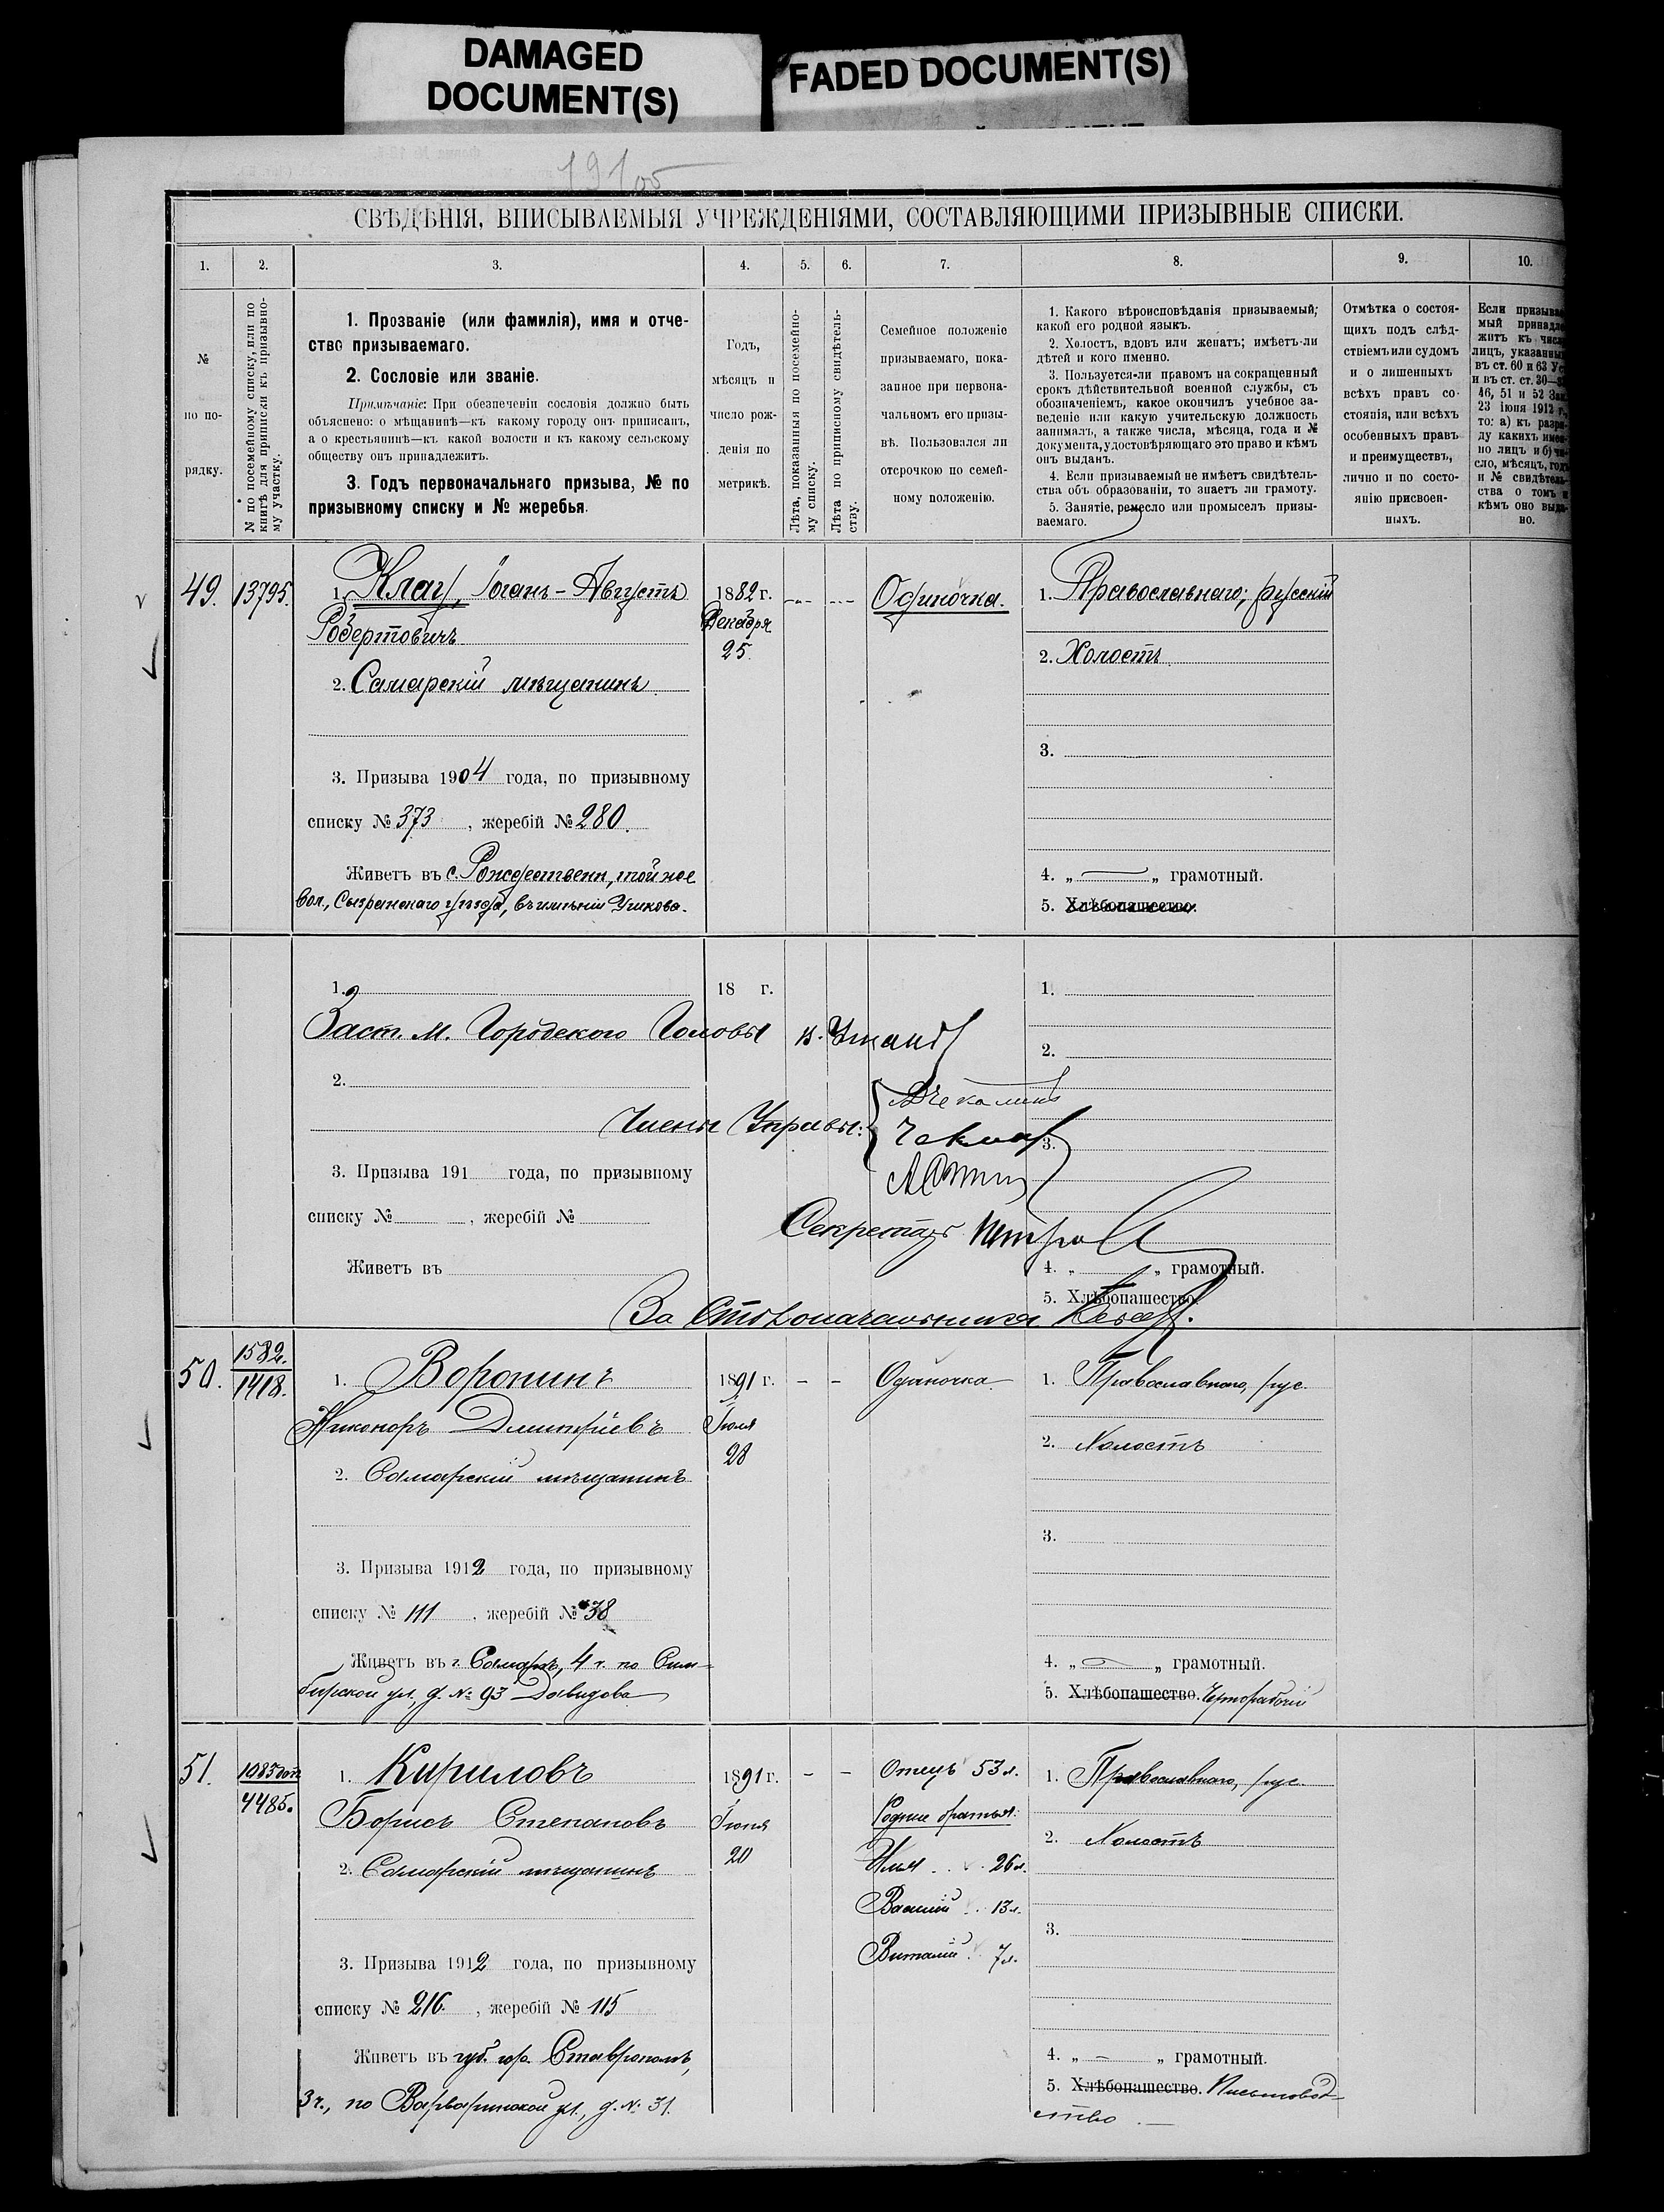 DAMAGED
DOCUMENT(S)
FADED DOCUMENT(S)
СВѢДѢНІЯ, ВПИСЫВАЕМЫЯ УЧРЕЖДЕНІЯМИ, СОСТАВЛЯЮЩИМИ ПРИЗЫВНЫЕ СПИСКИ.
1. 2. 3. 4. 5. 6. 7. 8. 9. 10.
№
по по-
рядку.
№ по посемейному списку, или по
книгѣ для приписки къ призывно-
му участку.
1. Прозваніе (или фамилія), имя и отче-
ство призываемаго.
2. Сословіе или званіе.
Примѣчаніе: При обезпеченіи сословія должно быть
объяснено: о мѣщанинѣ—къ какому городу онъ приписанъ,
а о крестьянинѣ—къ какой волости и къ какому сельскому
обществу онъ принадлежитъ.
3. Годъ первоначальнаго призыва, № по
призывному списку и № жеребья.
Годъ,
мѣсяцъ и
число рож-
денія по
метрикѣ.
Лѣта, показанныя по посемейно-
му списку.
Лѣта по приписному свидѣтель-
ству.
Семейное положеніе
призываемаго, пока-
занное при первона-
чальномъ его призы-
вѣ. Пользовался ли
отсрочкою по семей-
ному положенію.
1. Какого вѣроисповѣданія призываемый;
какой его родной языкъ.
2. Холостъ, вдовъ или женатъ; имѣетъ-ли
дѣтей и кого именно.
3. Пользуется-ли правомъ на сокращенный
срокъ дѣйствительной военной службы, съ
обозначеніемъ, какое окончилъ учебное за-
веденіе или какую учительскую должность
занималъ, а также числа, мѣсяца, года и №
документа, удостовѣряющаго это право и кѣмъ
онъ выданъ.
4. Если призываемый не имѣетъ свидѣтель-
ства объ образованіи, то знаетъ ли грамоту.
5. Занятіе, ремесло или промыселъ призы-
ваемаго.
Отмѣтка о состоя-
щихъ подъ слѣд-
ствіемъ или судомъ
и о лишенныхъ
всѣхъ правъ со-
стоянія, или всѣхъ
особенныхъ правъ
и преимуществъ,
лично и по состо-
янію присвоен-
ныхъ.
Если призывае
мый принадле
житъ къ числу
лицъ, указанных
въ ст. 60 и 63 Ус
и въ ст. ст. 30—
46, 51 и 52 Зак
23 іюня 1912 г.,
то: а) къ разря-
ду какихъ имен-
но лицъ и б) чи-
сло, мѣсяцъ, годъ
и № свидѣтель-
ства о томъ и
кѣмъ оно выда-
но.
49. 13795. 1. Клау, Іоганъ-Августъ 1882 г. Одиночка. 1. Православнаго, русскій
Робертовичъ Декабря
25.
2. Самарскій мѣщанинъ 2. Холостъ
3.
3. Призыва 1904 года, по призывному
списку № 373, жеребій № 280.
Живетъ въ с. Рождественн, той же 4. „ „ грамотный.
вол., Сызранскаго уѣзда, въ имѣніи Ушкова. 5. Хлѣбопашество.
1. 18 г. 1.
Заст. м. Городского Головы
2. 2.
Члены Управы:
3.
3. Призыва 191 года, по призывному
списку №, жеребій №
Секретарь
Живетъ въ 4. „ „ грамотный.
5. Хлѣбопашество.
За Столоначальника
50. 1582. 1418. 1. Воронинъ 1891 г. - - Одиночка 1. Православнаго, рус.
Никоноръ Дмитріевъ Іюля
28
2. Самарскій мѣщанинъ 2. Холостъ
3.
3. Призыва 1912 года, по призывному
списку № 111, жеребій № 38
Живетъ въ г. Самарѣ, 4 ч. по Сим- 4. „ „ грамотный.
бирской ул., д. № 93 Давидова 5. Хлѣбопашество. Чернорабочій
51. 1083 доп 4485. 1. Кириловъ 1891 г. - - Отецъ 53 л. 1. Православнаго, рус.
Борисъ Степановъ Іюня Родные братья:
20
2. Самарскій мѣщанинъ Илья 26 л. 2. Холостъ
Василій 13 л.
3.
Виталій 7 л.
3. Призыва 1912 года, по призывному
списку № 216, жеребій № 115
Живетъ въ губ. гор. Ставрополѣ, 4. „ - „ грамотный.
3 ч., по Варваринской ул., д. № 31. 5. Хлѣбопашество. Письмовод-
ство